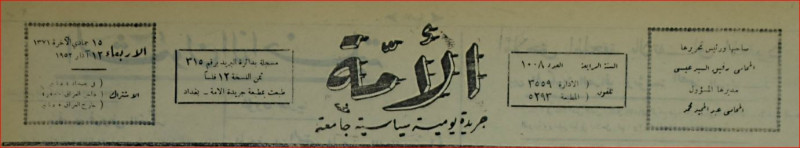 صاحبها ورئيس تحريرها
المحامي رفيق السيد عيسى
مديرها المسؤول
المحامي عبد المجيد محمد
السنة الرابعة العدد ١٠٠٨
تلفون
الادارة ٣٥٥٩
المطبعة ٥٢٩٣
الأمة
جريدة يومية سياسية جامعة
مسجلة بدائرة البريد رقم ٣١٥
ثمن النسخة ١٢ فلساً
طبعت بمطبعة جريدة الامة - بغداد
الاربعاء
١٥ جمادي الآخرة ١٣٧١
١٢ آذار ١٩٥٢
الاشتراك